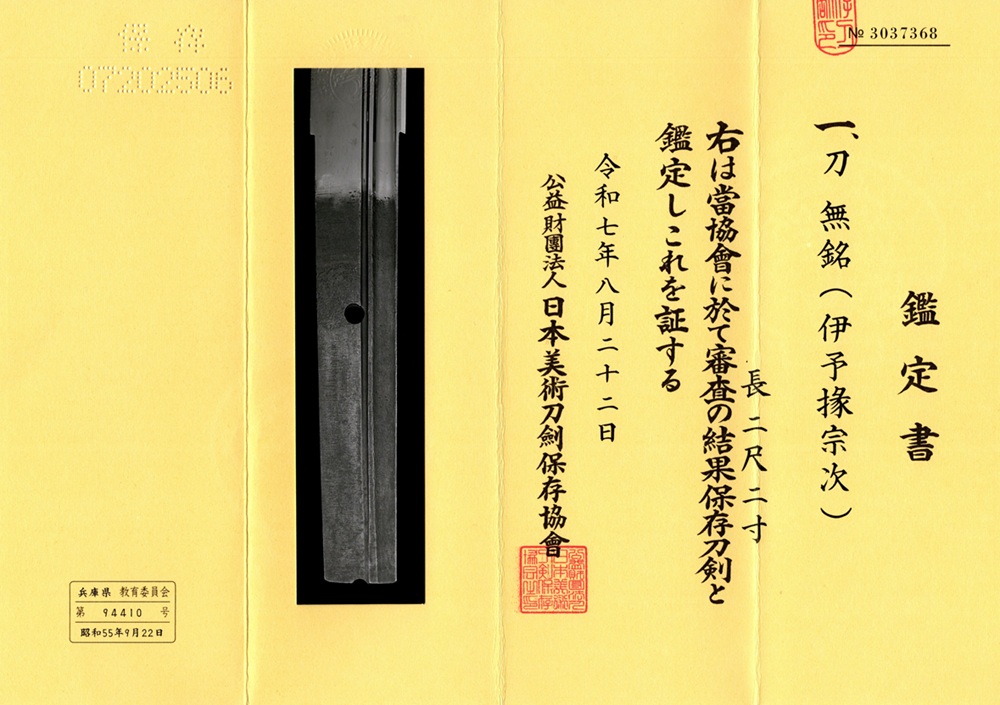 № 3037368
鑑定書
一、刀 無銘(伊予掾宗次)
長二尺二寸
右は當協會に於て審査の結果保存刀剣と
鑑定しこれを証する
令和七年八月二十二日
公益財團法人 日本美術刀劍保存協會
保存
07202506
兵庫県 教育委員会
第 94410 号
昭和55年9月22日